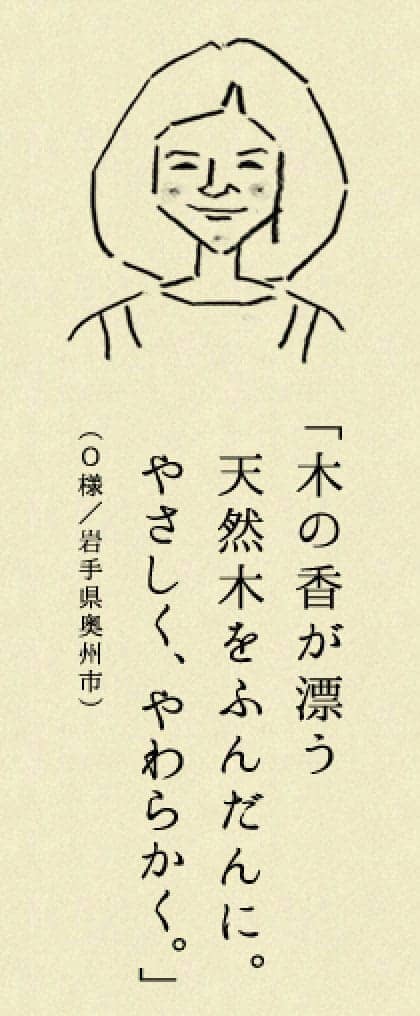 「木の香が漂う
天然木をふんだんに。
やさしく、やわらかく。」
（O様／岩手県奥州市）